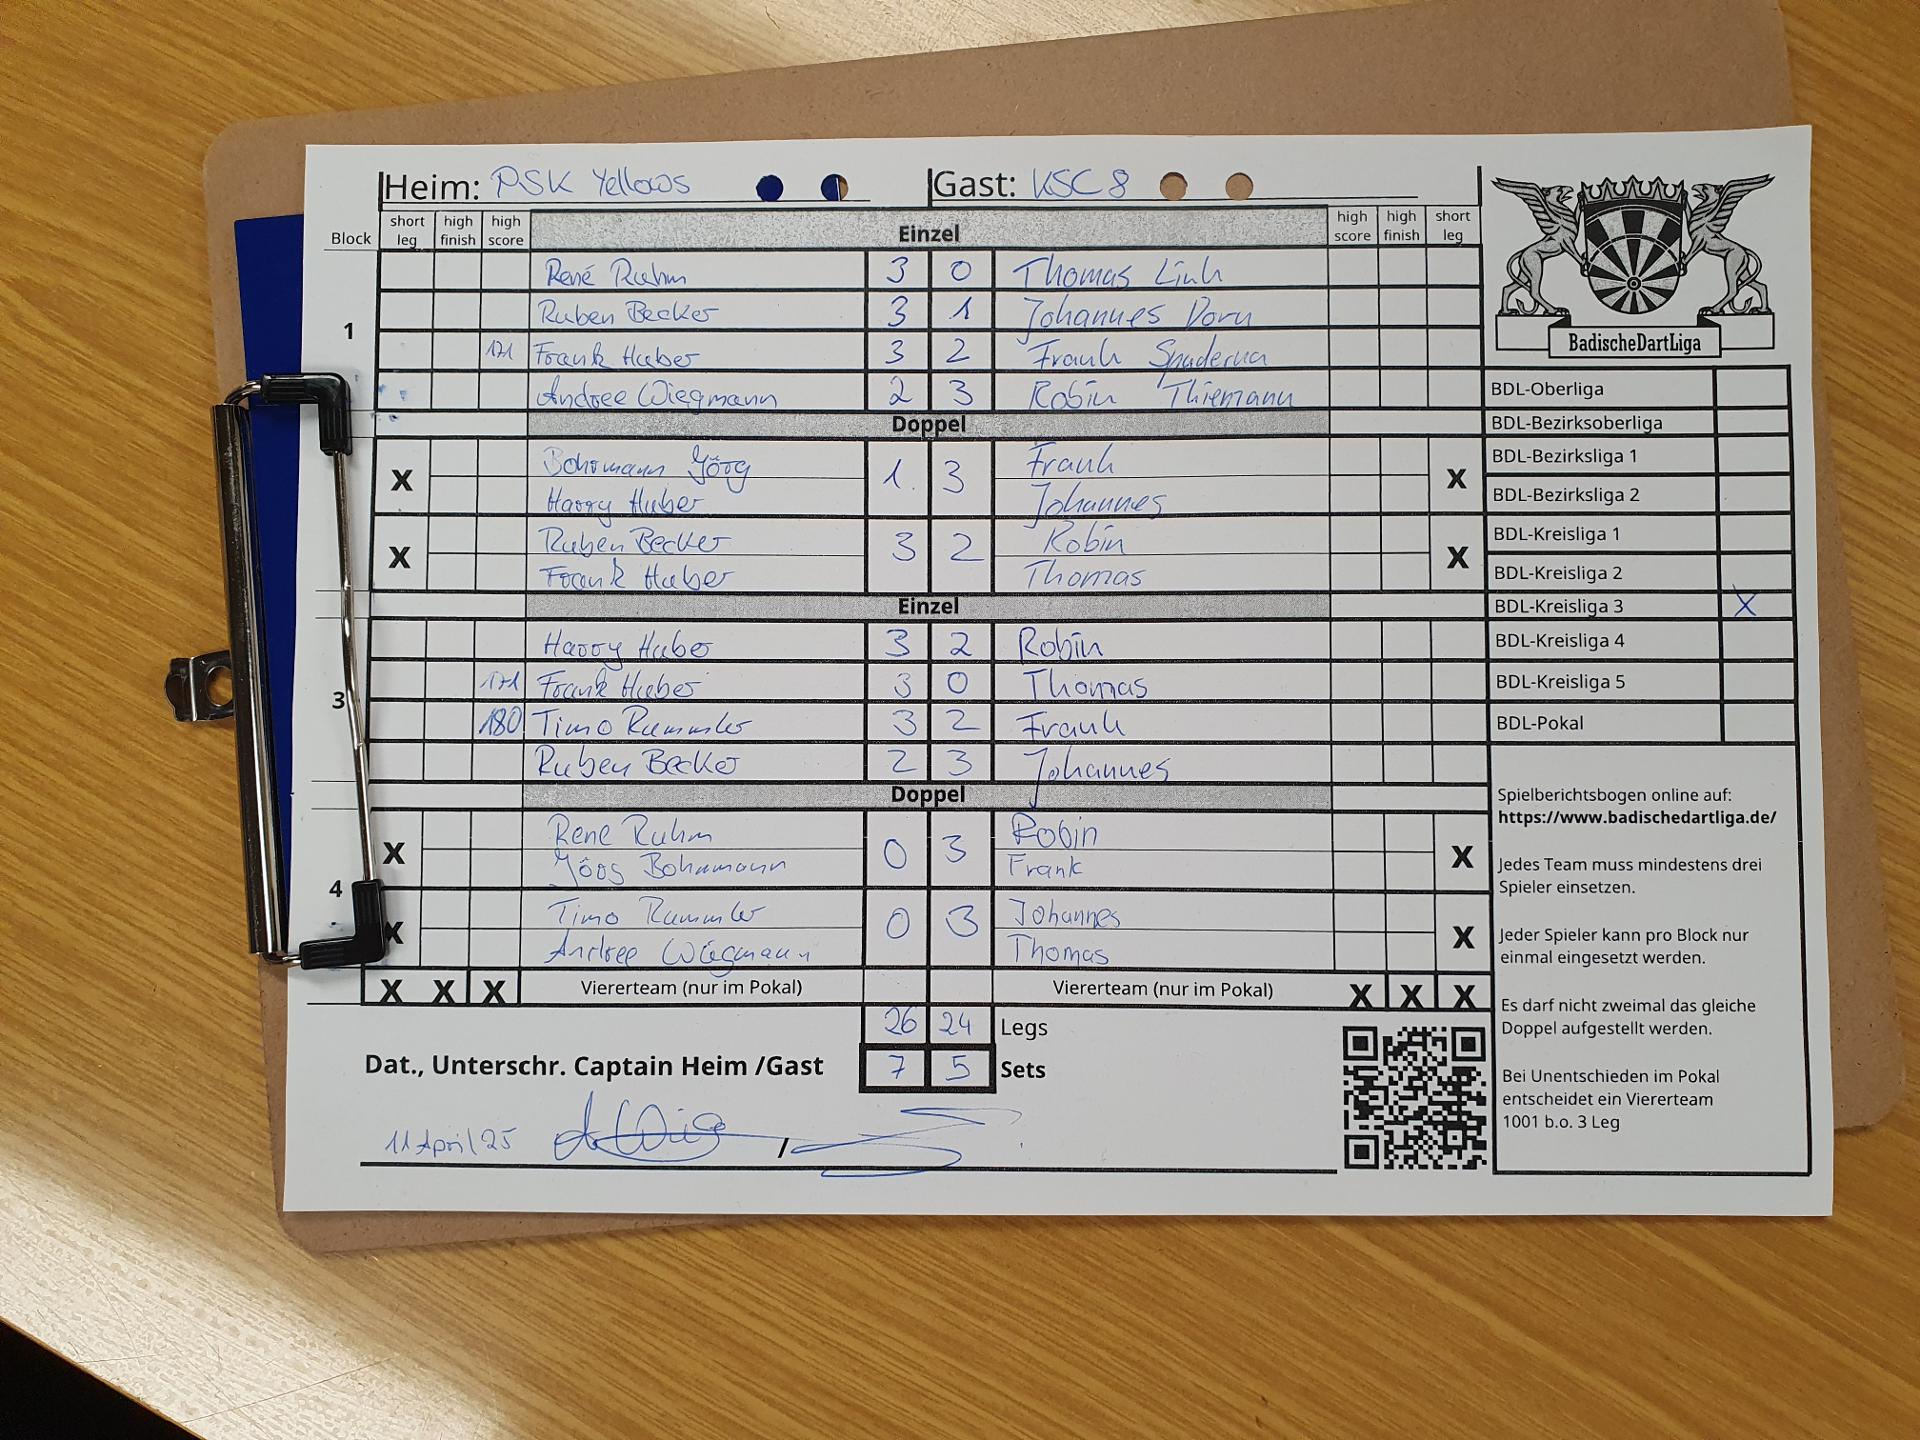 Heim: PSK Yellows Gast: KSC 8
Block short leg high finish high score Einzel high score high finish short leg
René Ruhm 3 0 Thomas Link
1 Ruben Becker 3 1 Johannes Dorn
171 Frank Huber 3 2 Frank Spaderna
Andree Wiegmann 2 3 Robin Thiemann
Doppel
X Bohrmann Jörg 1. 3 Frank X
Harry Huber Johannes
X Ruben Becker 3 2 Robin X
Frank Huber Thomas
Einzel
Harry Huber 3 2 Robin
3 171 Frank Huber 3 0 Thomas
180 Timo Rummler 3 2 Frank
Ruben Becker 2 3 Johannes
Doppel
X René Ruhm 0 3 Robin X
4 Jörg Bohrmann Frank
X Timo Rummler 0 3 Johannes X
Andree Wiegmann Thomas
X X X Viererteam (nur im Pokal) Viererteam (nur im Pokal) X X X
26 24 Legs
Dat., Unterschr. Captain Heim /Gast 7 5 Sets
11 April/25 /
BadischeDartLiga
BDL-Oberliga
BDL-Bezirksoberliga
BDL-Bezirksliga 1
BDL-Bezirksliga 2
BDL-Kreisliga 1
BDL-Kreisliga 2
BDL-Kreisliga 3 X
BDL-Kreisliga 4
BDL-Kreisliga 5
BDL-Pokal
Spielberichtsbogen online auf:
https://www.badischedartliga.de/
Jedes Team muss mindestens drei
Spieler einsetzen.
Jeder Spieler kann pro Block nur
einmal eingesetzt werden.
Es darf nicht zweimal das gleiche
Doppel aufgestellt werden.
Bei Unentschieden im Pokal
entscheidet ein Viererteam
1001 b.o. 3 Leg